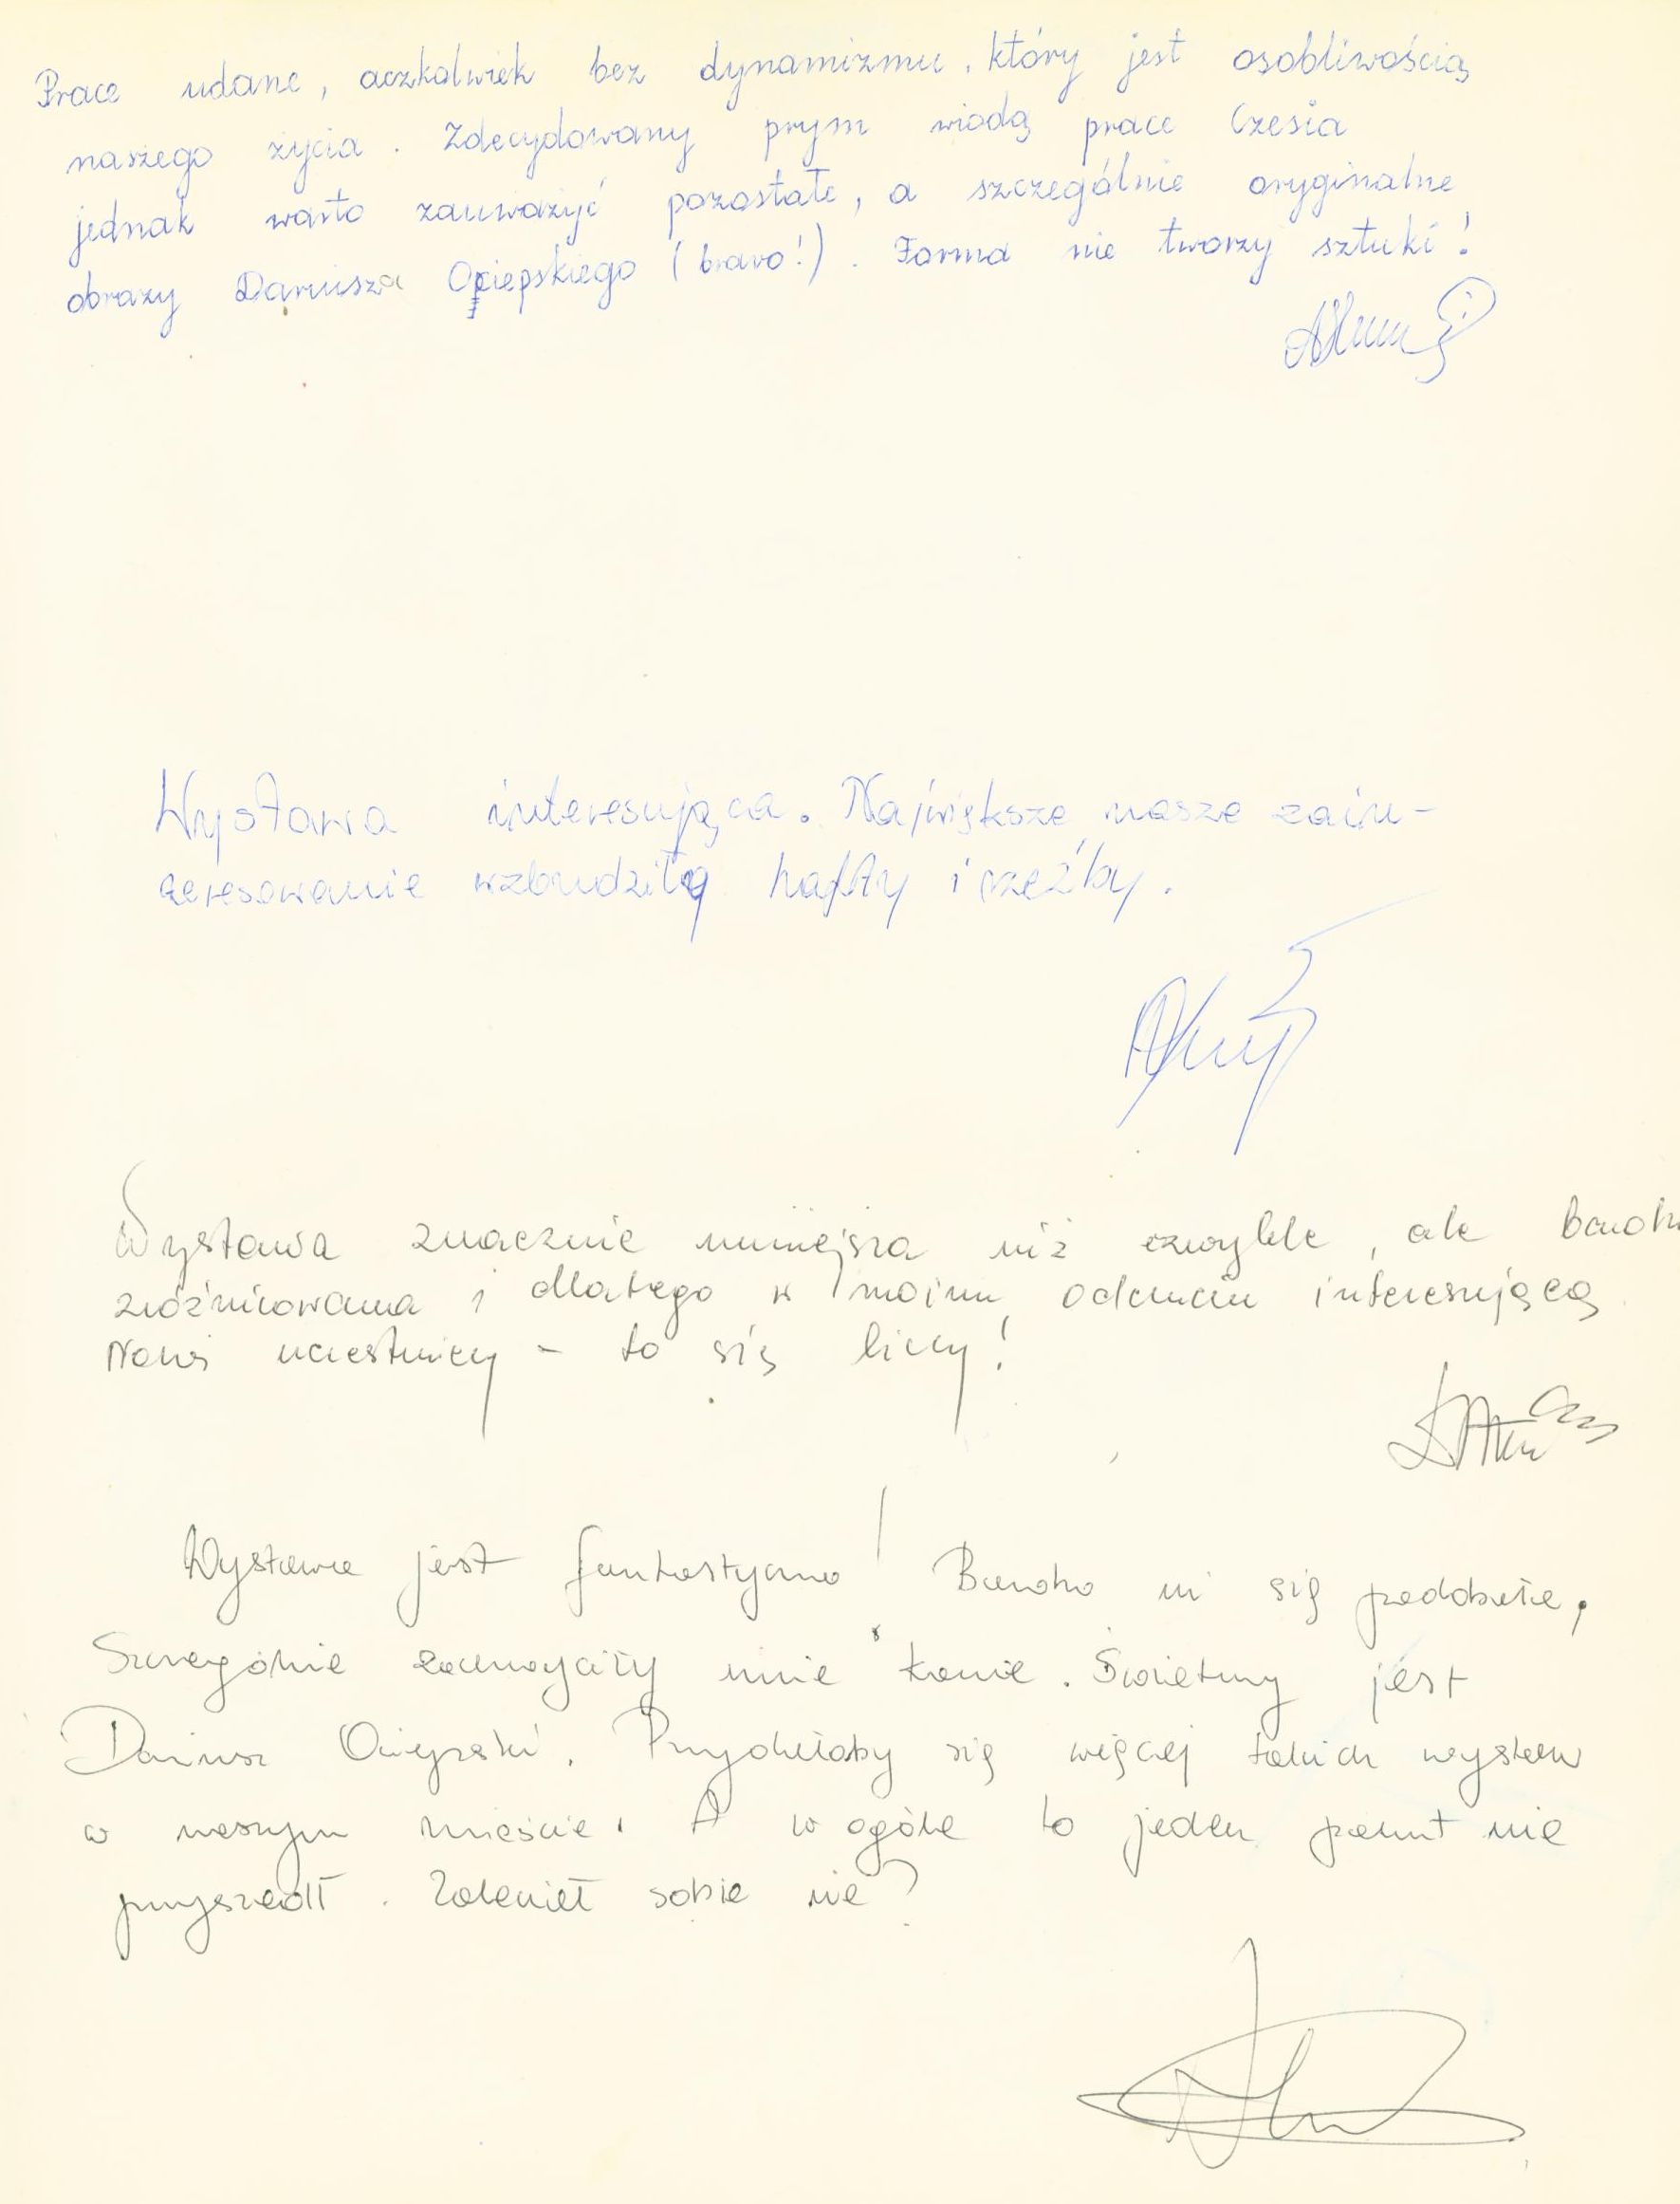 Prace udane, aczkolwiek bez dynamizmu, który jest osobliwością
naszego życia. Zdecydowany prym wiodą prace Czesia
jednak warto zauważyć pozostałe, a szczególnie oryginalne
obrazy Dariusza Ociepskiego (bravo!). Forma nie tworzy sztuki!
Wystawa interesująca. Największe nasze zain-
teresowanie wzbudziły hafty i rzeźby.
Wystawa znacznie mniejsza niż zwykle, ale
zróżnicowana i dlatego w moim odczuciu interesującą
Nowi uczestnicy - to się liczy!
Wystawa jest fantastyczna! Bardzo mi się podobała,
Szczególnie zachwyciły mnie konie. Świetny jest
Dariusz Ociepski. Przydałoby się więcej takich wystaw
w naszym mieście. A w ogóle to jeden palant nie
przyszedł. Zaleniał sobie nie?